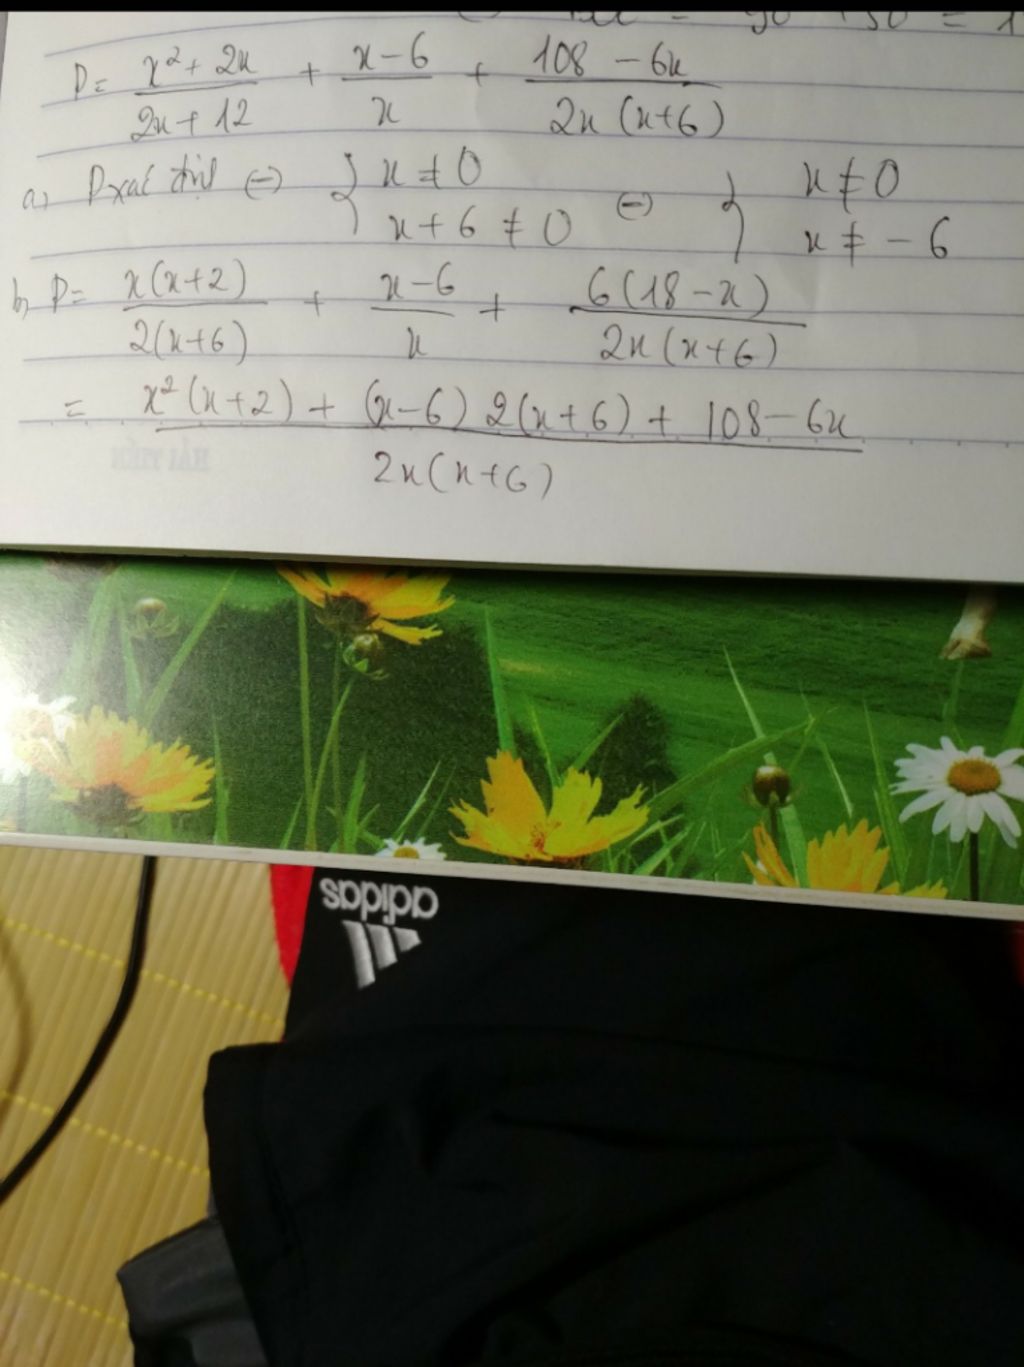 P = \frac{x^2 + 2x}{2x + 12} + \frac{x - 6}{x} + \frac{108 - 6x}{2x(x+6)}
a, P xác định ⇔ { x ≠ 0 ; x + 6 ≠ 0 ⇔ { x ≠ 0 ; x ≠ -6
b, P = \frac{x(x+2)}{2(x+6)} + \frac{x - 6}{x} + \frac{6(18 - x)}{2x(x+6)}
= \frac{x^2(x+2) + (x-6)2(x+6) + 108 - 6x}{2x(x+6)}
adidas